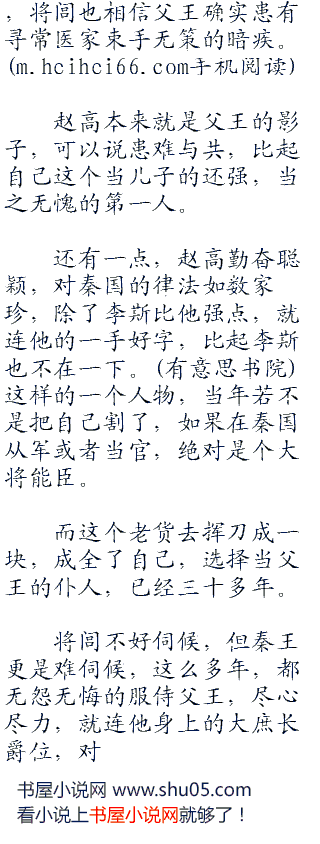 ，将闾也相信父王确实患有
寻常医家束手无策的暗疾。
(m.hcihci66.com手机阅读)
赵高本来就是父王的影
子，可以说患难与共，比起
自己这个当儿子的还强，当
之无愧的第一人。
还有一点，赵高勤奋聪
颖，对秦国的律法如数家
珍，除了李斯比他强点，就
连他的一手好字，比起李斯
也不在一下。(有意思书院)
这样的一个人物，当年若不
是把自己割了，如果在秦国
从军或者当官，绝对是个大
将能臣。
而这个老货去挥刀成一
块，成全了自己，选择当父
王的仆人，已经三十多年。
将闾不好伺候，但秦王
更是难伺候，这么多年，都
无怨无悔的服侍父王，尽心
尽力，就连他身上的大庶长
爵位，对
书屋小说网 www.shu05.com
看小说上书屋小说网就够了！